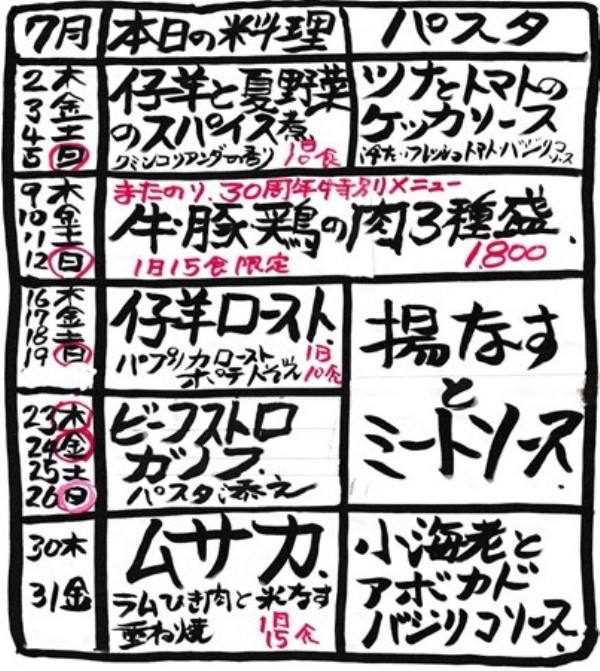 7月 本日の料理 パスタ
2 木
3 金
4 土
5 日
仔羊と夏野菜
のスパイス煮
クミンコリアンダーの香り
1日10食
ツナとトマトの
ケッカソース
冷たいフレッシュトマト・バジリコソース
9 木
10 金
11 土
12 日
またのり、30周年特別メニュー
牛・豚・鶏の肉3種盛。
1日15食限定
1800
16 木
17 金
18 土
19 日
仔羊ロースト。
パプリカロースト
ポテトぞえ
1日10食
揚なす
と
ミートソース。
23 木
24 金
25 土
26 日
ビーフストロ
ガノフ。
パスタ添え
30 木
31 金
ムサカ。
ラムひき肉と米なす
重ね焼
1日15食
小海老と
アボカド
バジリコソース。